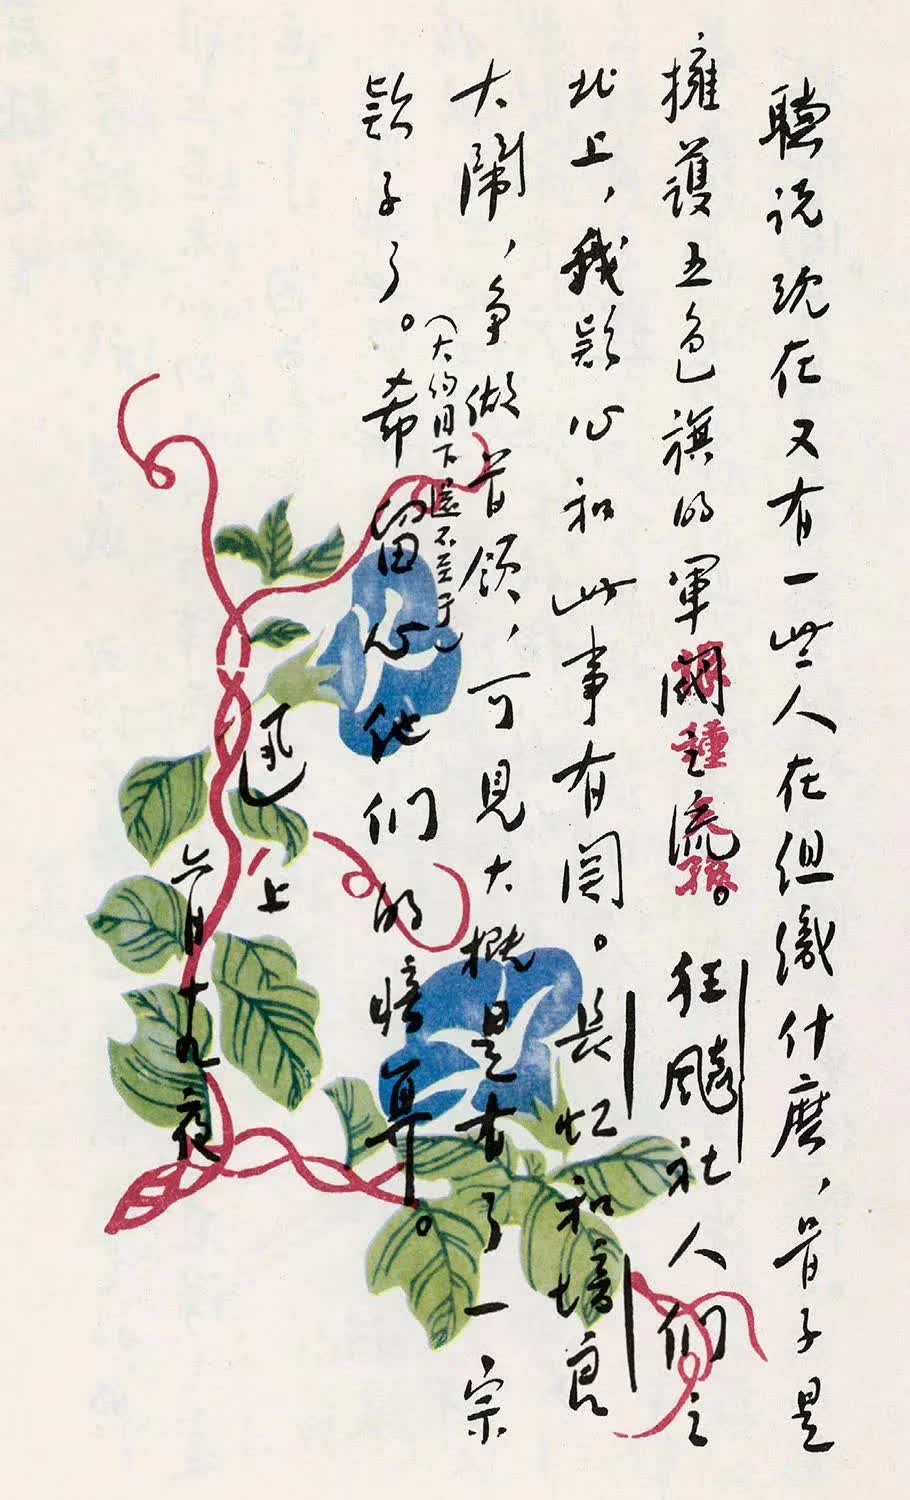 聽说现在又有一些人在组織什麽，骨子是
擁護五色旗的軍閥之流。狂飇社人们之
北上，我疑心和此事有関。長虹和培良
大鬧，争做首领，可見大概是有了一宗
款子了。（大约目下還不至于）希留心他们的暗算。
迅 上
六月十九夜